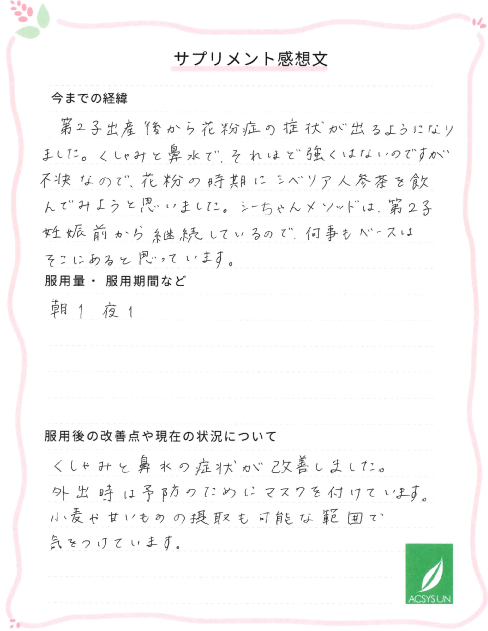 サプリメント感想文
今までの経緯
第2子出産後から花粉症の症状が出るようになり
ました。くしゃみと鼻水で、それほど強くはないのですが
不快なので、花粉の時期にシベリア人参茶を飲
んでみようと思いました。シーちゃんメソッドは、第2子
妊娠前から継続しているので、何事もベースは
そこにあると思っています。
服用量・服用期間など
朝1 夜1
服用後の改善点や現在の状況について
くしゃみと鼻水の症状が改善しました。
外出時は予防のためにマスクを付けています。
小麦や甘いものの摂取も可能な範囲で
気をつけています。
ACSYSUN